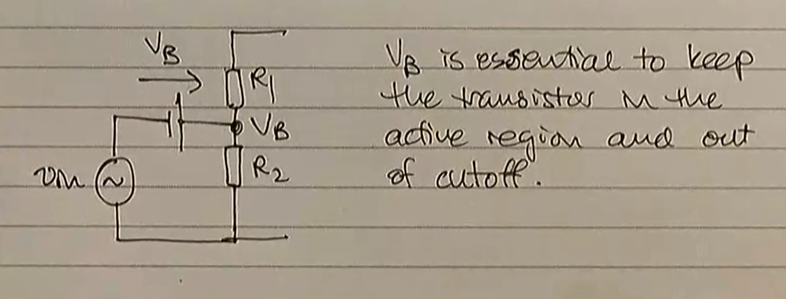 VB
R1
VB
R2
vin
VB is essential to keep
the transistor in the
active region and out
of cutoff.